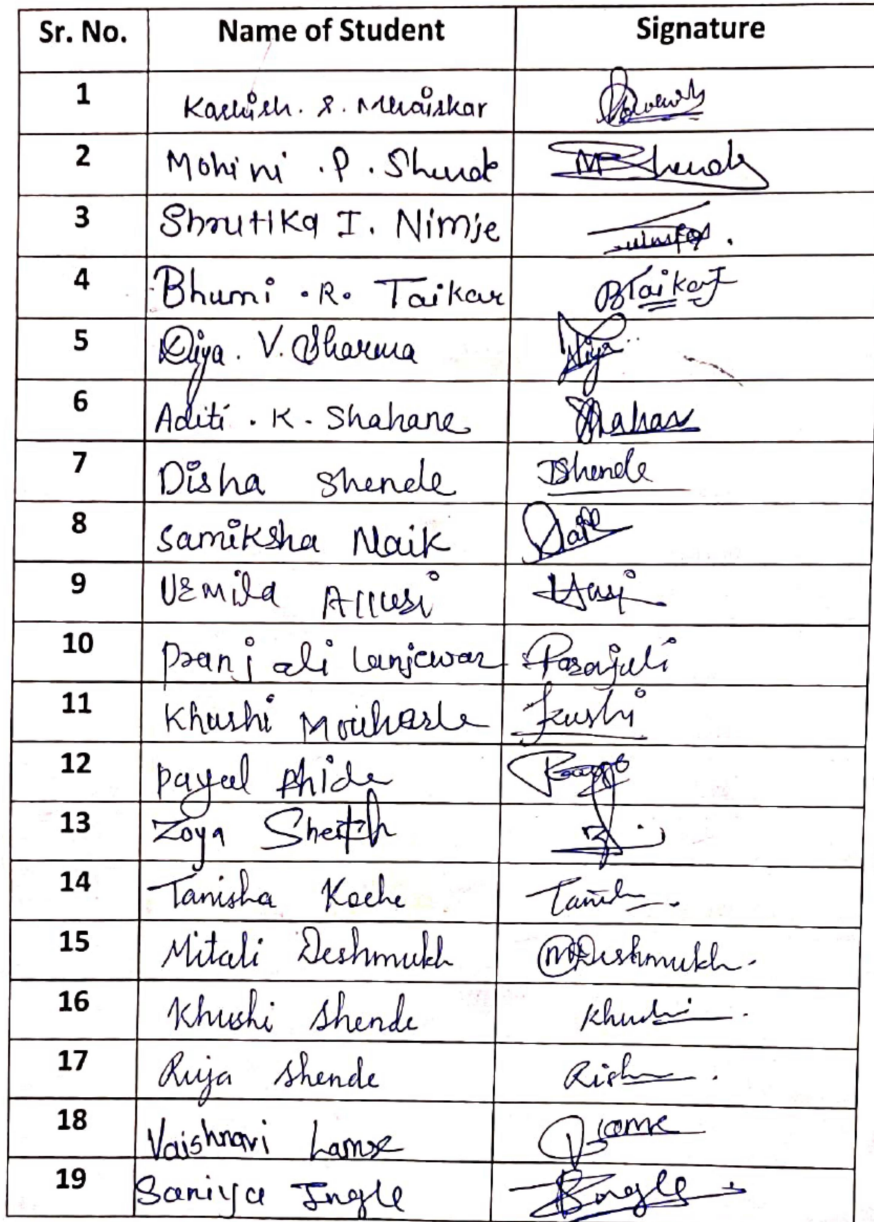 Sr. No. Name of Student Signature
1 Kashish. S. Meraiskar
2 Mohini . P . Shende MShende
3 Shrutika I. Nimje
4 Bhumi . R. Taikar BTaikar
5 Diya. V. Sharma Diya
6 Aditi . K . Shahane
7 Disha Shende DShende
8 Samiksha Naik Naik
9
10 Pranjali Lanjewar Pranjali
11 Khushi Khushi
12 Payal Bhide
13 Zoya Sheikh
14 Tanisha Koche Tanish.
15 Mitali Deshmukh MDeshmukh.
16 Khushi Shende Khushi.
17 Ruja Shende
18 Vaishnavi Lamse
19 Saniya Ingle SIngle